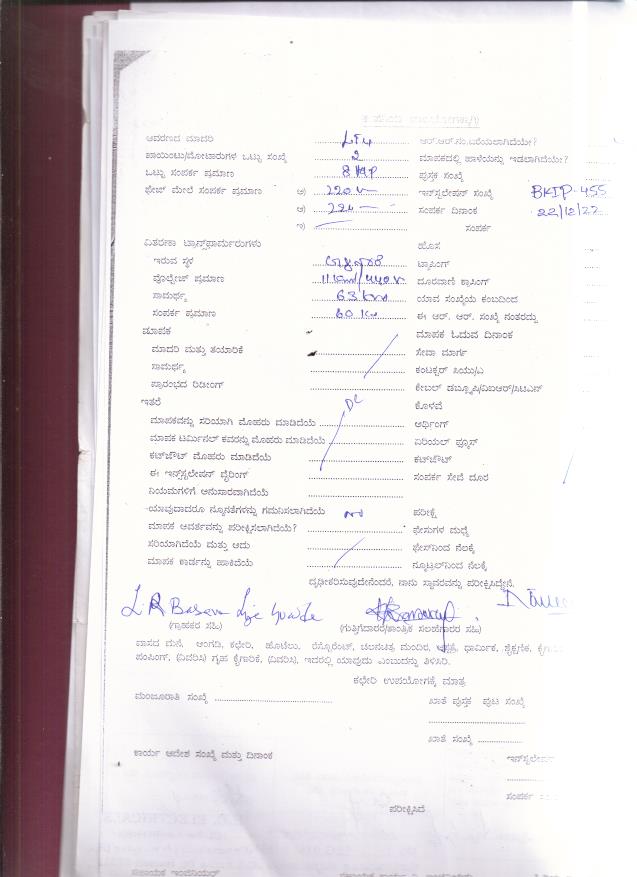 ಆವರಣದ ಮಾದರಿ LT4 ಆರ್.ಆರ್.ನಂ.ಬರೆಯಲಾಗಿದೆಯೇ?
ಪಾಯಿಂಟು/ಮೋಟಾರುಗಳ ಒಟ್ಟು ಸಂಖ್ಯೆ 2 ಮಾಪಕದಲ್ಲಿ ಹಾಳೆಯನ್ನು ಇಡಲಾಗಿದೆಯೇ?
ಒಟ್ಟು ಸಂಪರ್ಕ ಪ್ರಮಾಣ 8 HP ಪುಸ್ತಕ ಸಂಖ್ಯೆ
ಫೇಜ್ ಮೇಲೆ ಸಂಪರ್ಕ ಪ್ರಮಾಣ ಅ) 220 ಇನ್‌ಸ್ಟಲೇಷನ್ ಸಂಖ್ಯೆ BKIP-455
ಆ) ಸಂಪರ್ಕ ದಿನಾಂಕ 22/12/22
ಇ) ಸಂಪರ್ಕ
ವಿತರಣಾ ಟ್ರಾನ್ಸ್‌ಫಾರ್ಮರುಗಳು ಹೊಸ
ಇರುವ ಸ್ಥಳ ಟ್ಯಾಪಿಂಗ್
ವೊಲ್ಟೇಜ್ ಪ್ರಮಾಣ ದೂರವಾಣಿ ಕ್ರಾಸಿಂಗ್
ಸಾಮರ್ಥ್ಯ 63 ಯಾವ ಸಂಖ್ಯೆಯ ಕಂಬದಿಂದ
ಸಂಪರ್ಕ ಪ್ರಮಾಣ 60 ಈ ಆರ್. ಆರ್. ಸಂಖ್ಯೆ ನಂತರದ್ದು
ಮಾಪಕ ಮಾಪಕ ಓದುವ ದಿನಾಂಕ
ಮಾದರಿ ಮತ್ತು ತಯಾರಿಕೆ ಸೇವಾ ಮಾರ್ಗ
ಸಾಮರ್ಥ್ಯ ಕಂಡಕ್ಟರ್ ಸಿಯು/ಎ
ಪ್ರಾರಂಭದ ರಿಡೀಂಗ್ ಕೇಬಲ್ ಡಬ್ಲ್ಯೂಪಿ/ವಿಐಆರ್/ಸಿಟಿಎಸ್
ಇತರೆ DC ಕೊಳವೆ
ಮಾಪಕವನ್ನು ಸರಿಯಾಗಿ ಮೊಹರು ಮಾಡಿದೆಯೆ ಅರ್ಥಿಂಗ್
ಮಾಪಕ ಟರ್ಮಿನಲ್ ಕವರನ್ನು ಮೊಹರು ಮಾಡಿದೆಯೆ ಏರಿಯಲ್ ಫ್ಯೂಸ್
ಕಟ್‌ಔಟ್ ಮೊಹರು ಮಾಡಿದೆಯೆ ಕಟ್‌ಔಟ್
ಈ ಇನ್‌ಸ್ಟಲೇಷನ್ ವೈರಿಂಗ್ ಸಂಪರ್ಕ ಸೇವೆ ದೂರ
ನಿಯಮಗಳಿಗೆ ಅನುಸಾರವಾಗಿದೆಯೆ
ಯಾವುದಾದರೂ ನ್ಯೂನತೆಗಳನ್ನು ಗಮನಿಸಲಾಗಿದೆಯೆ ಪರೀಕ್ಷೆ
ಮಾಪಕ ಆವರ್ತವನ್ನು ಪರೀಕ್ಷಿಸಲಾಗಿದೆಯೆ? ಫೇಸುಗಳ ಮಧ್ಯೆ
ಸರಿಯಾಗಿದೆಯೆ ಮತ್ತು ಅದು ಫೇಸ್‌ನಿಂದ ನೆಲಕ್ಕೆ
ಮಾಪಕ ಕಾರ್ಡನ್ನು ಹಾಕಿದೆಯೆ ನ್ಯೂಟ್ರಲ್‌ನಿಂದ ನೆಲಕ್ಕೆ
ದೃಢೀಕರಿಸುವುದೇನೆಂದರೆ, ನಾನು ಸ್ಥಾವರವನ್ನು ಪರೀಕ್ಷಿಸಿದ್ದೇನೆ.
(ಗ್ರಾಹಕರ ಸಹಿ) (ಗುತ್ತಿಗೆದಾರರ/ತಾಂತ್ರಿಕ ಸಲಹೆಗಾರರ ಸಹಿ)
ವಾಸದ ಮನೆ, ಅಂಗಡಿ, ಕಛೇರಿ, ಹೊಟೆಲು, ರೆಸ್ಟೋರೆಂಟ್, ಚಲನಚಿತ್ರ ಮಂದಿರ, ಆಸ್ಪತ್ರೆ, ಧಾರ್ಮಿಕ, ಶೈಕ್ಷಣಿಕ,
ಪಂಪಿಂಗ್, (ವಿವರಿಸಿ) ಗೃಹ ಕೈಗಾರಿಕೆ, (ವಿವರಿಸಿ), ಇದರಲ್ಲಿ ಯಾವುದು ಎಂಬುದನ್ನು ತಿಳಿಸಿರಿ.
ಕಛೇರಿ ಉಪಯೋಗಕ್ಕೆ ಮಾತ್ರ
ಮಂಜೂರಾತಿ ಸಂಖ್ಯೆ ಖಾತೆ ಪುಸ್ತಕ ಪುಟ ಸಂಖ್ಯೆ
ಖಾತೆ ಸಂಖ್ಯೆ
ಕಾರ್ಯ ಆದೇಶ ಸಂಖ್ಯೆ ಮತ್ತು ದಿನಾಂಕ
ಸಂಪರ್ಕ
ಪರೀಕ್ಷಿಸಿದೆ